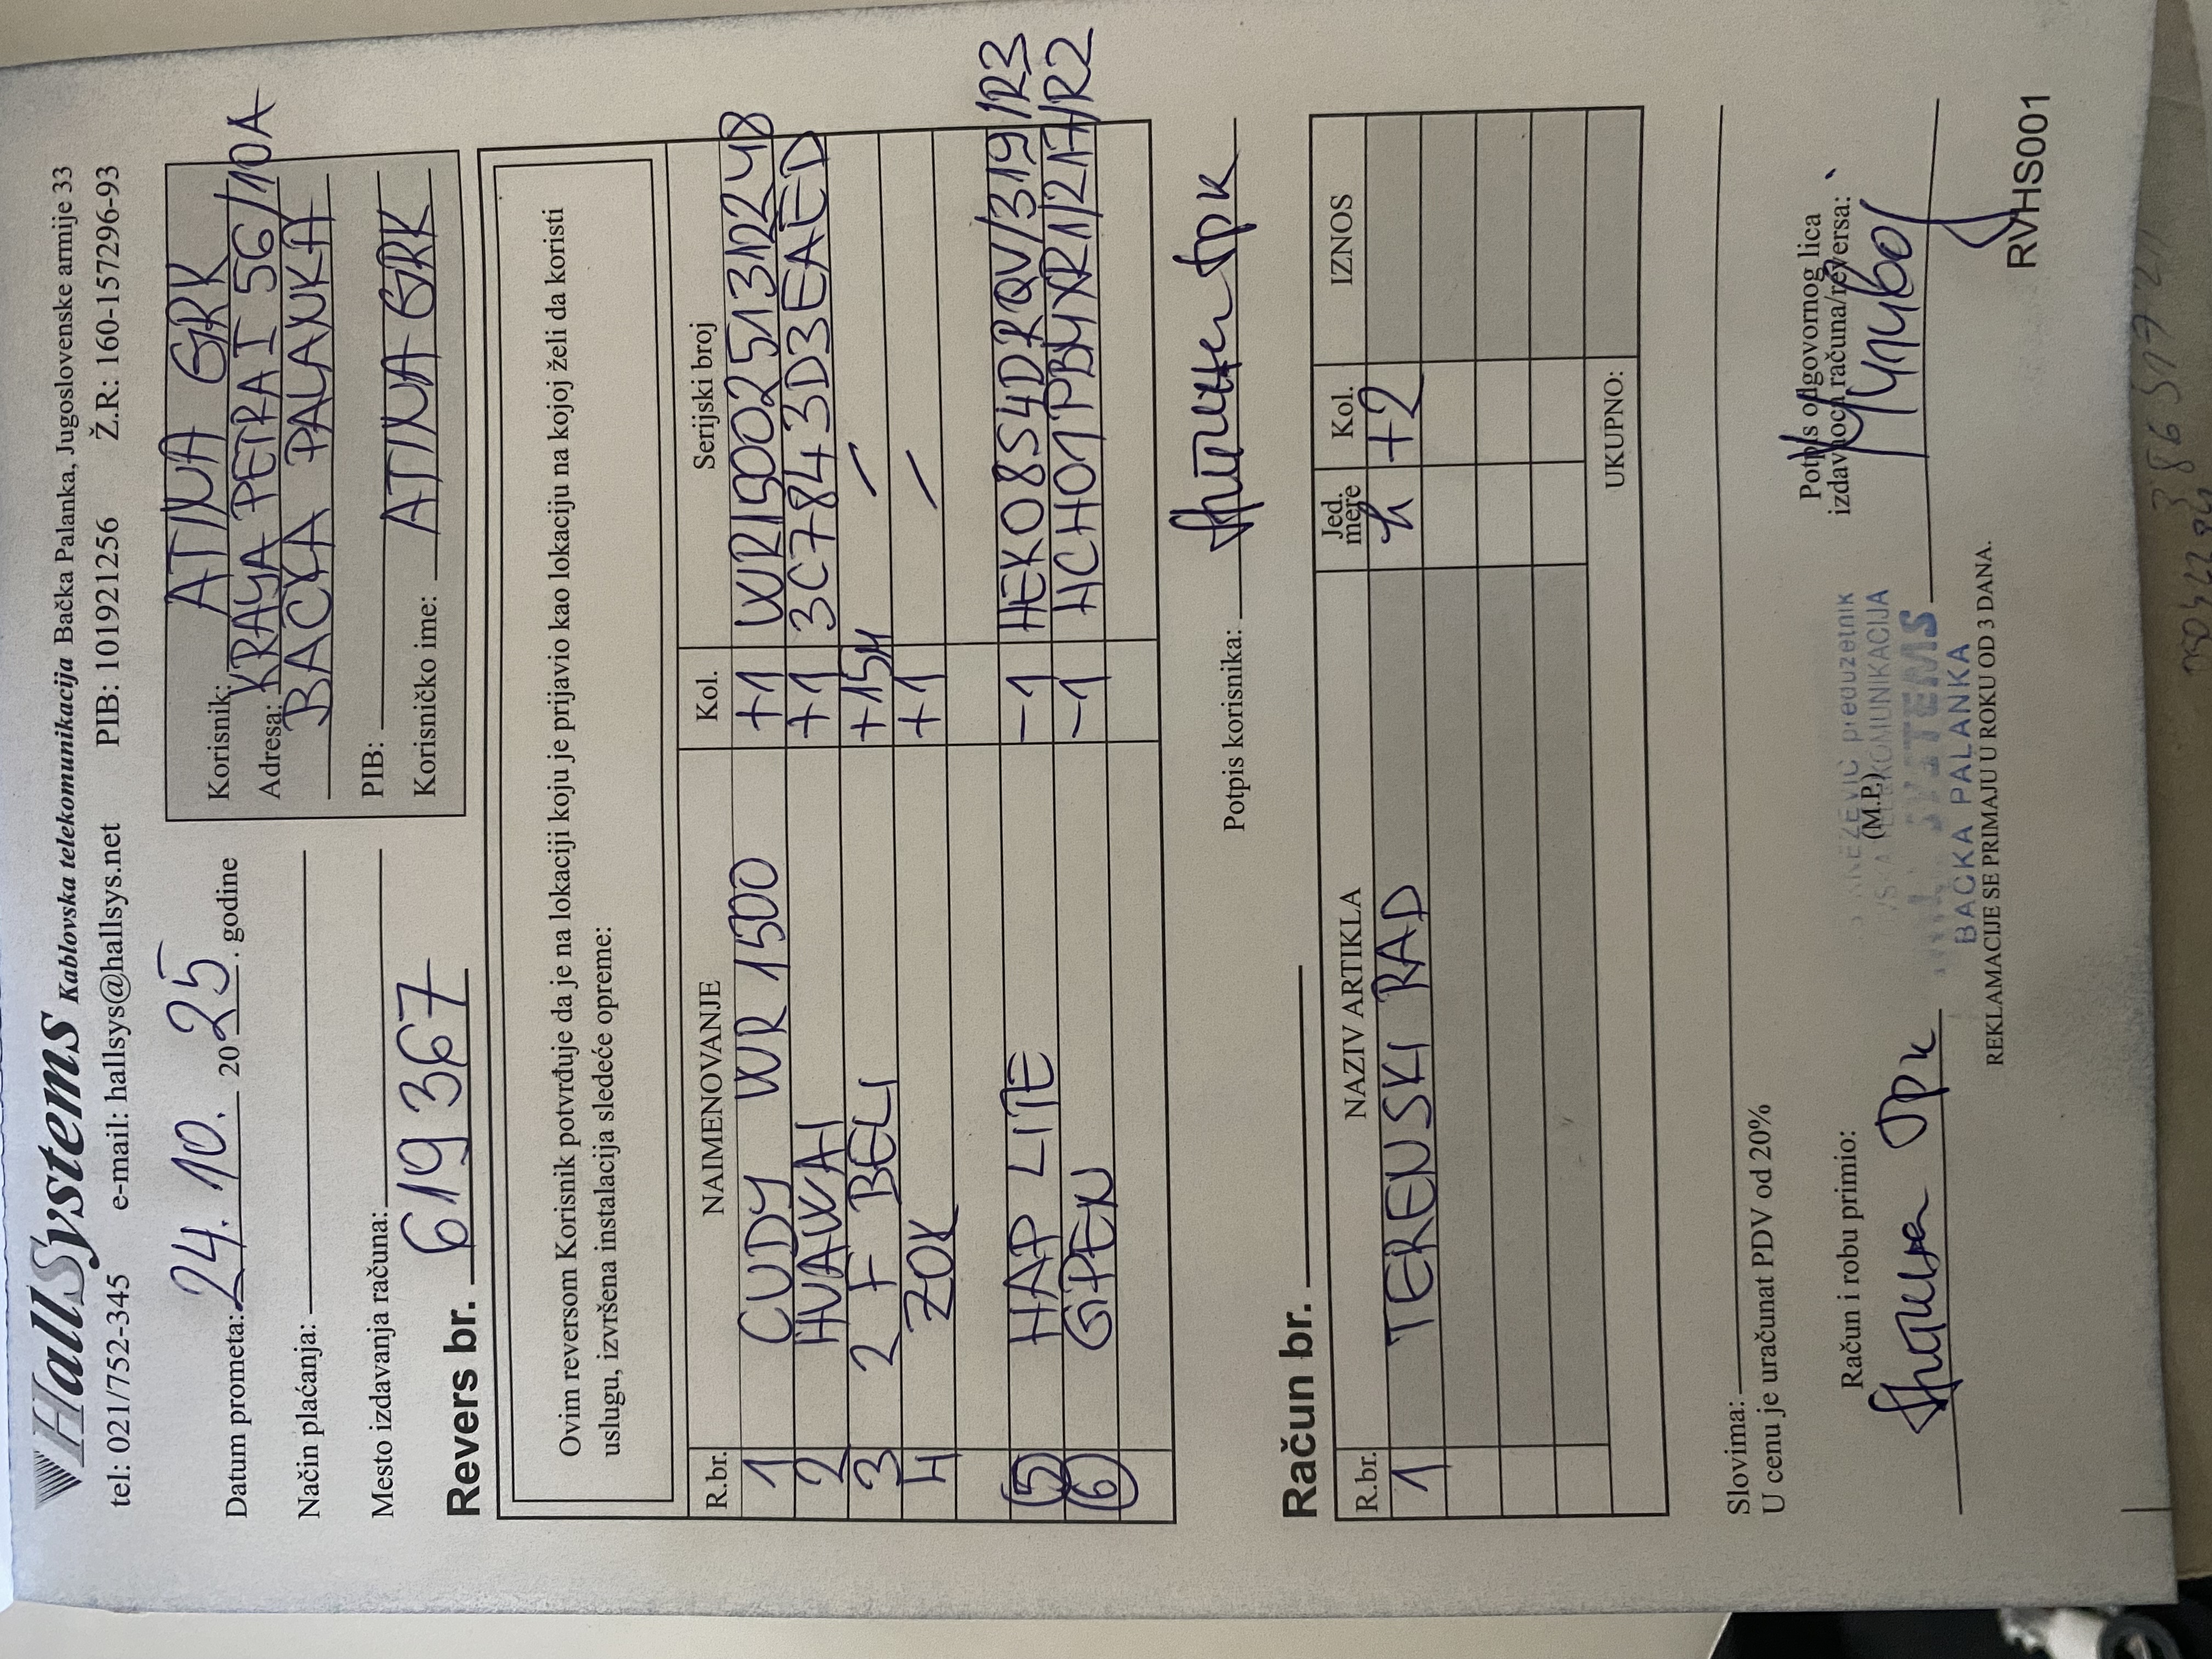 HallSystems Kablovska telekomunikacija Bačka Palanka, Jugoslovenske armije 33
tel: 021/752-345 e-mail: hallsys@hallsys.net PIB: 101921256 Ž.R.: 160-157296-93
Datum prometa: 24. 10. 2025. godine
Način plaćanja:
Mesto izdavanja računa:
Revers br. 619367
Korisnik: ATINA GRK
Adresa: KRALJA PETRA I 56/10A
BAČKA PALANKA
PIB:
Korisničko ime: ATINA GRK
Ovim reversom Korisnik potvrđuje da je na lokaciji koju je prijavio kao lokaciju na kojoj želi da koristi
uslugu, izvršena instalacija sledeće opreme:
R.br. NAIMENOVANJE Kol. Serijski broj
1 CUDY WR 1500 +1 WR1500251312248
2 HUAWAI +1 3C7843D3EAED
3 2 F BELI +15H /
4 ZOK +1 /
(5) HAP LITE -1 HEK0854DRQV/319/R3
(6) GPEN -1 HCH07PBYXR1/217/R2
Potpis korisnika: Атина Грк
Račun br.
R.br. NAZIV ARTIKLA Jed. mere Kol. IZNOS
1 TERENSKI RAD h +2
UKUPNO:
Slovima:
U cenu je uračunat PDV od 20%
Račun i robu primio:
Атина Грк
(M.P.)
preduzetnik
KOMUNIKACIJA
BAČKA PALANKA
Potpis odgovornog lica
izdavaoca računa/reversa:
REKLAMACIJE SE PRIMAJU U ROKU OD 3 DANA.
RVHS001